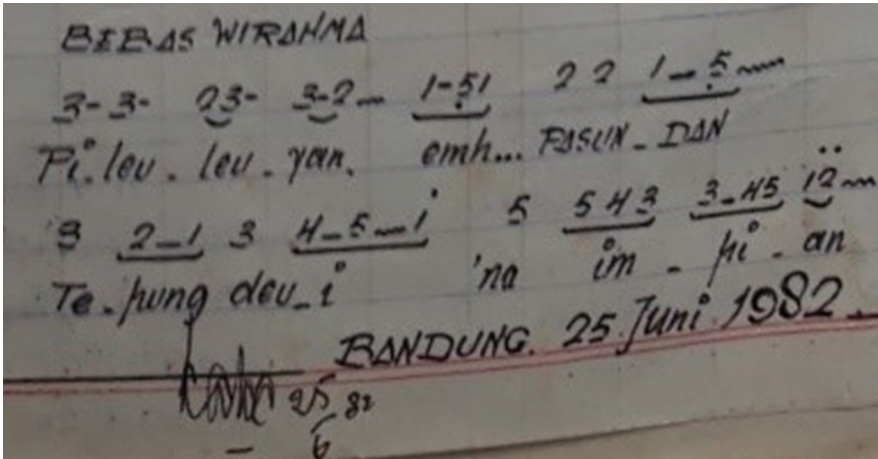 BEBAS WIRAHMA
3- 3- 23- 3-2- 1-51 2 2 1-5
Pi.leu.leu.yan. emh... PASUN-DAN
3 2-1 3 4-5-1 5 543 3-45 12
Te.pung deu-i 'na im-pi-an
BANDUNG. 25 Juni 1982
25 82
6